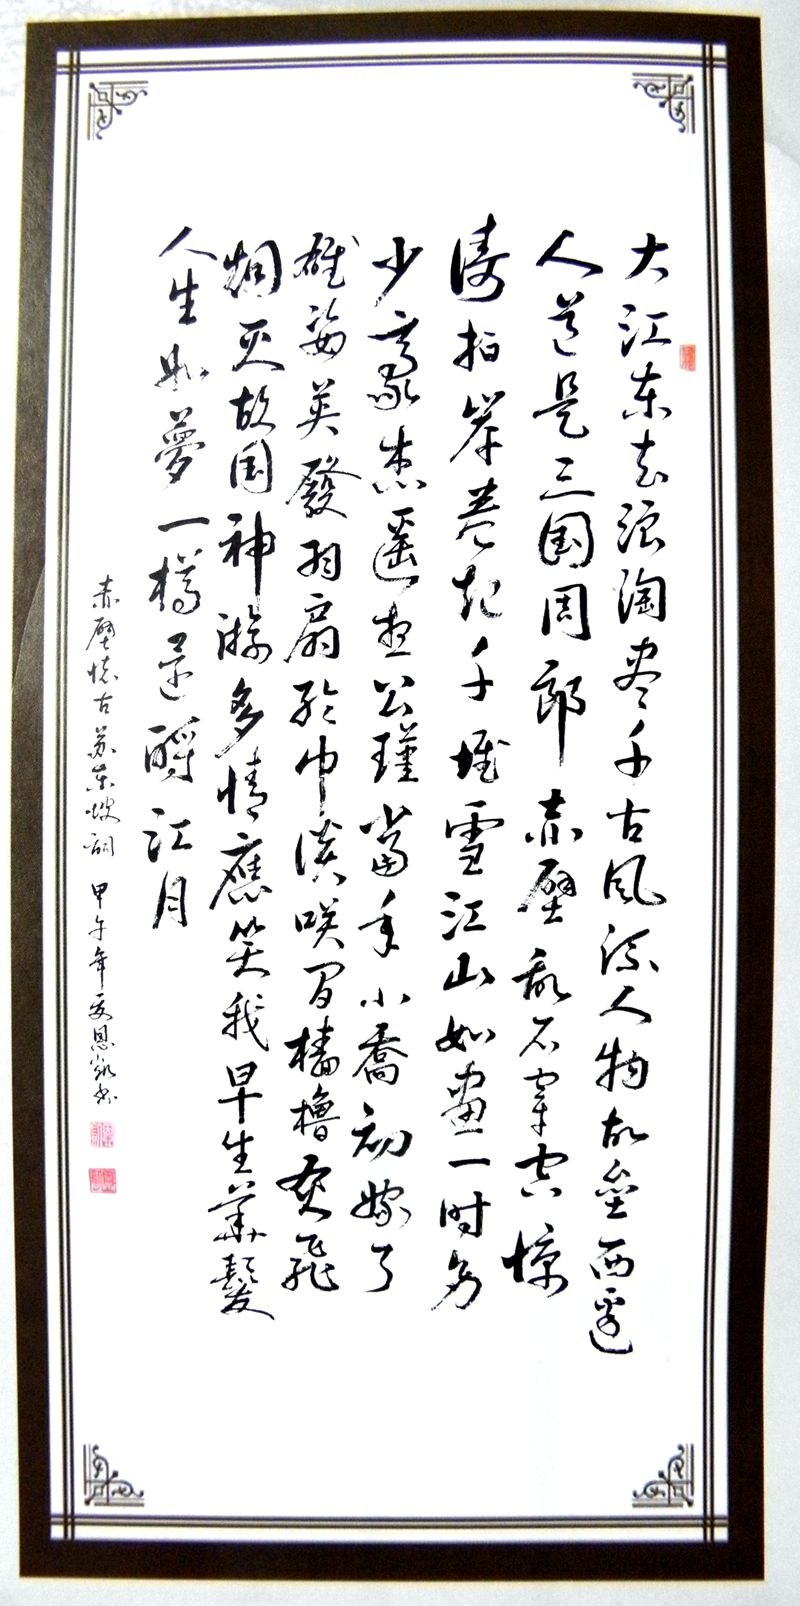 大江东去浪淘尽千古风流人物故垒西边
人道是三国周郎赤壁乱石穿空惊
涛拍岸卷起千堆雪江山如画一时多
少豪杰遥想公瑾当年小乔初嫁了
雄姿英發羽扇纶巾谈笑间樯橹灰飞
烟灭故国神游多情應笑我早生華髮
人生如夢一樽还酹江月
赤壁怀古苏东坡词 甲午年 恩 书